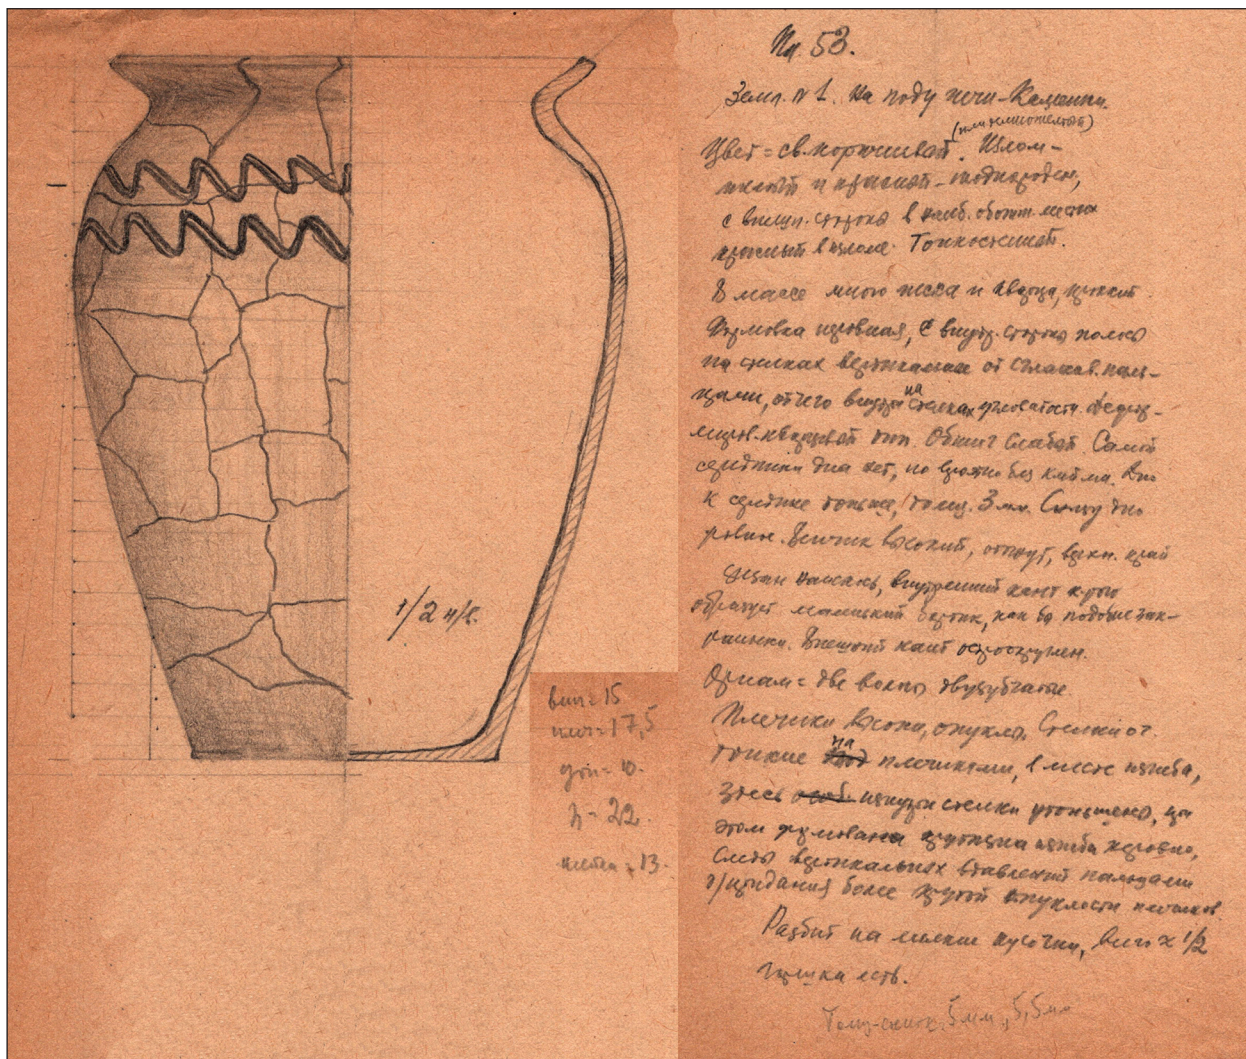 1/2 н/в.
вен = 15
плеч = 17,5
дон = 10.
h = 22.
шейка = 13.
Пл. 53.
Земл. № 1. На поду печи-Каменки.
(или глиножелтый)
Цвет = св. коричневый. Излом-
желтый и красный - неоднороден,
с внешн. стороны в наиб. обожж. местах
красный в изломе. Тонкостенный.
В массе много песка и кварца, хрупкий.
Формовка неровная, с внутр. стороны полосы
на стенках вертикальные от сглажив. паль-
цами, отчего внутри на стенках угловатости.
Обжиг слабый. Самой
середины дна нет, но видно без клейма. Дно
к середине тоньше, толщ. 3 мм. Снизу дно
ровное. Венчик высокий, отогнут, верхн. край
срезан наискось, внутренний кант
образует маленький бортик, как бы подобие зак-
раинки. Внешний кант
Орнам = две волны двузубчатые.
Плечики высоки, выпуклы. Стенки от.
тонкие на плечиками, в месте изгиба,
Здесь изнутри стенки утоньшены, при
этом изгиба неровно,
Следы вертикальных вдавлений пальцами
д/придания более крутой выпуклости плечиков.
Разбит на мелкие кусочки, всего ≈ 1/2
горшка есть.
Толщ. стенок 5 мм, 5,5 мм